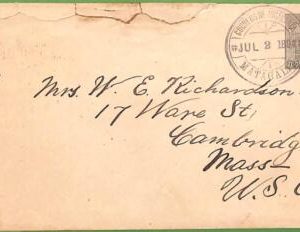 JUL 2 18
MANAGUA
Mrs. W. E. Richardson
17 Ware St.
Cambridge
Mass—
U.S.